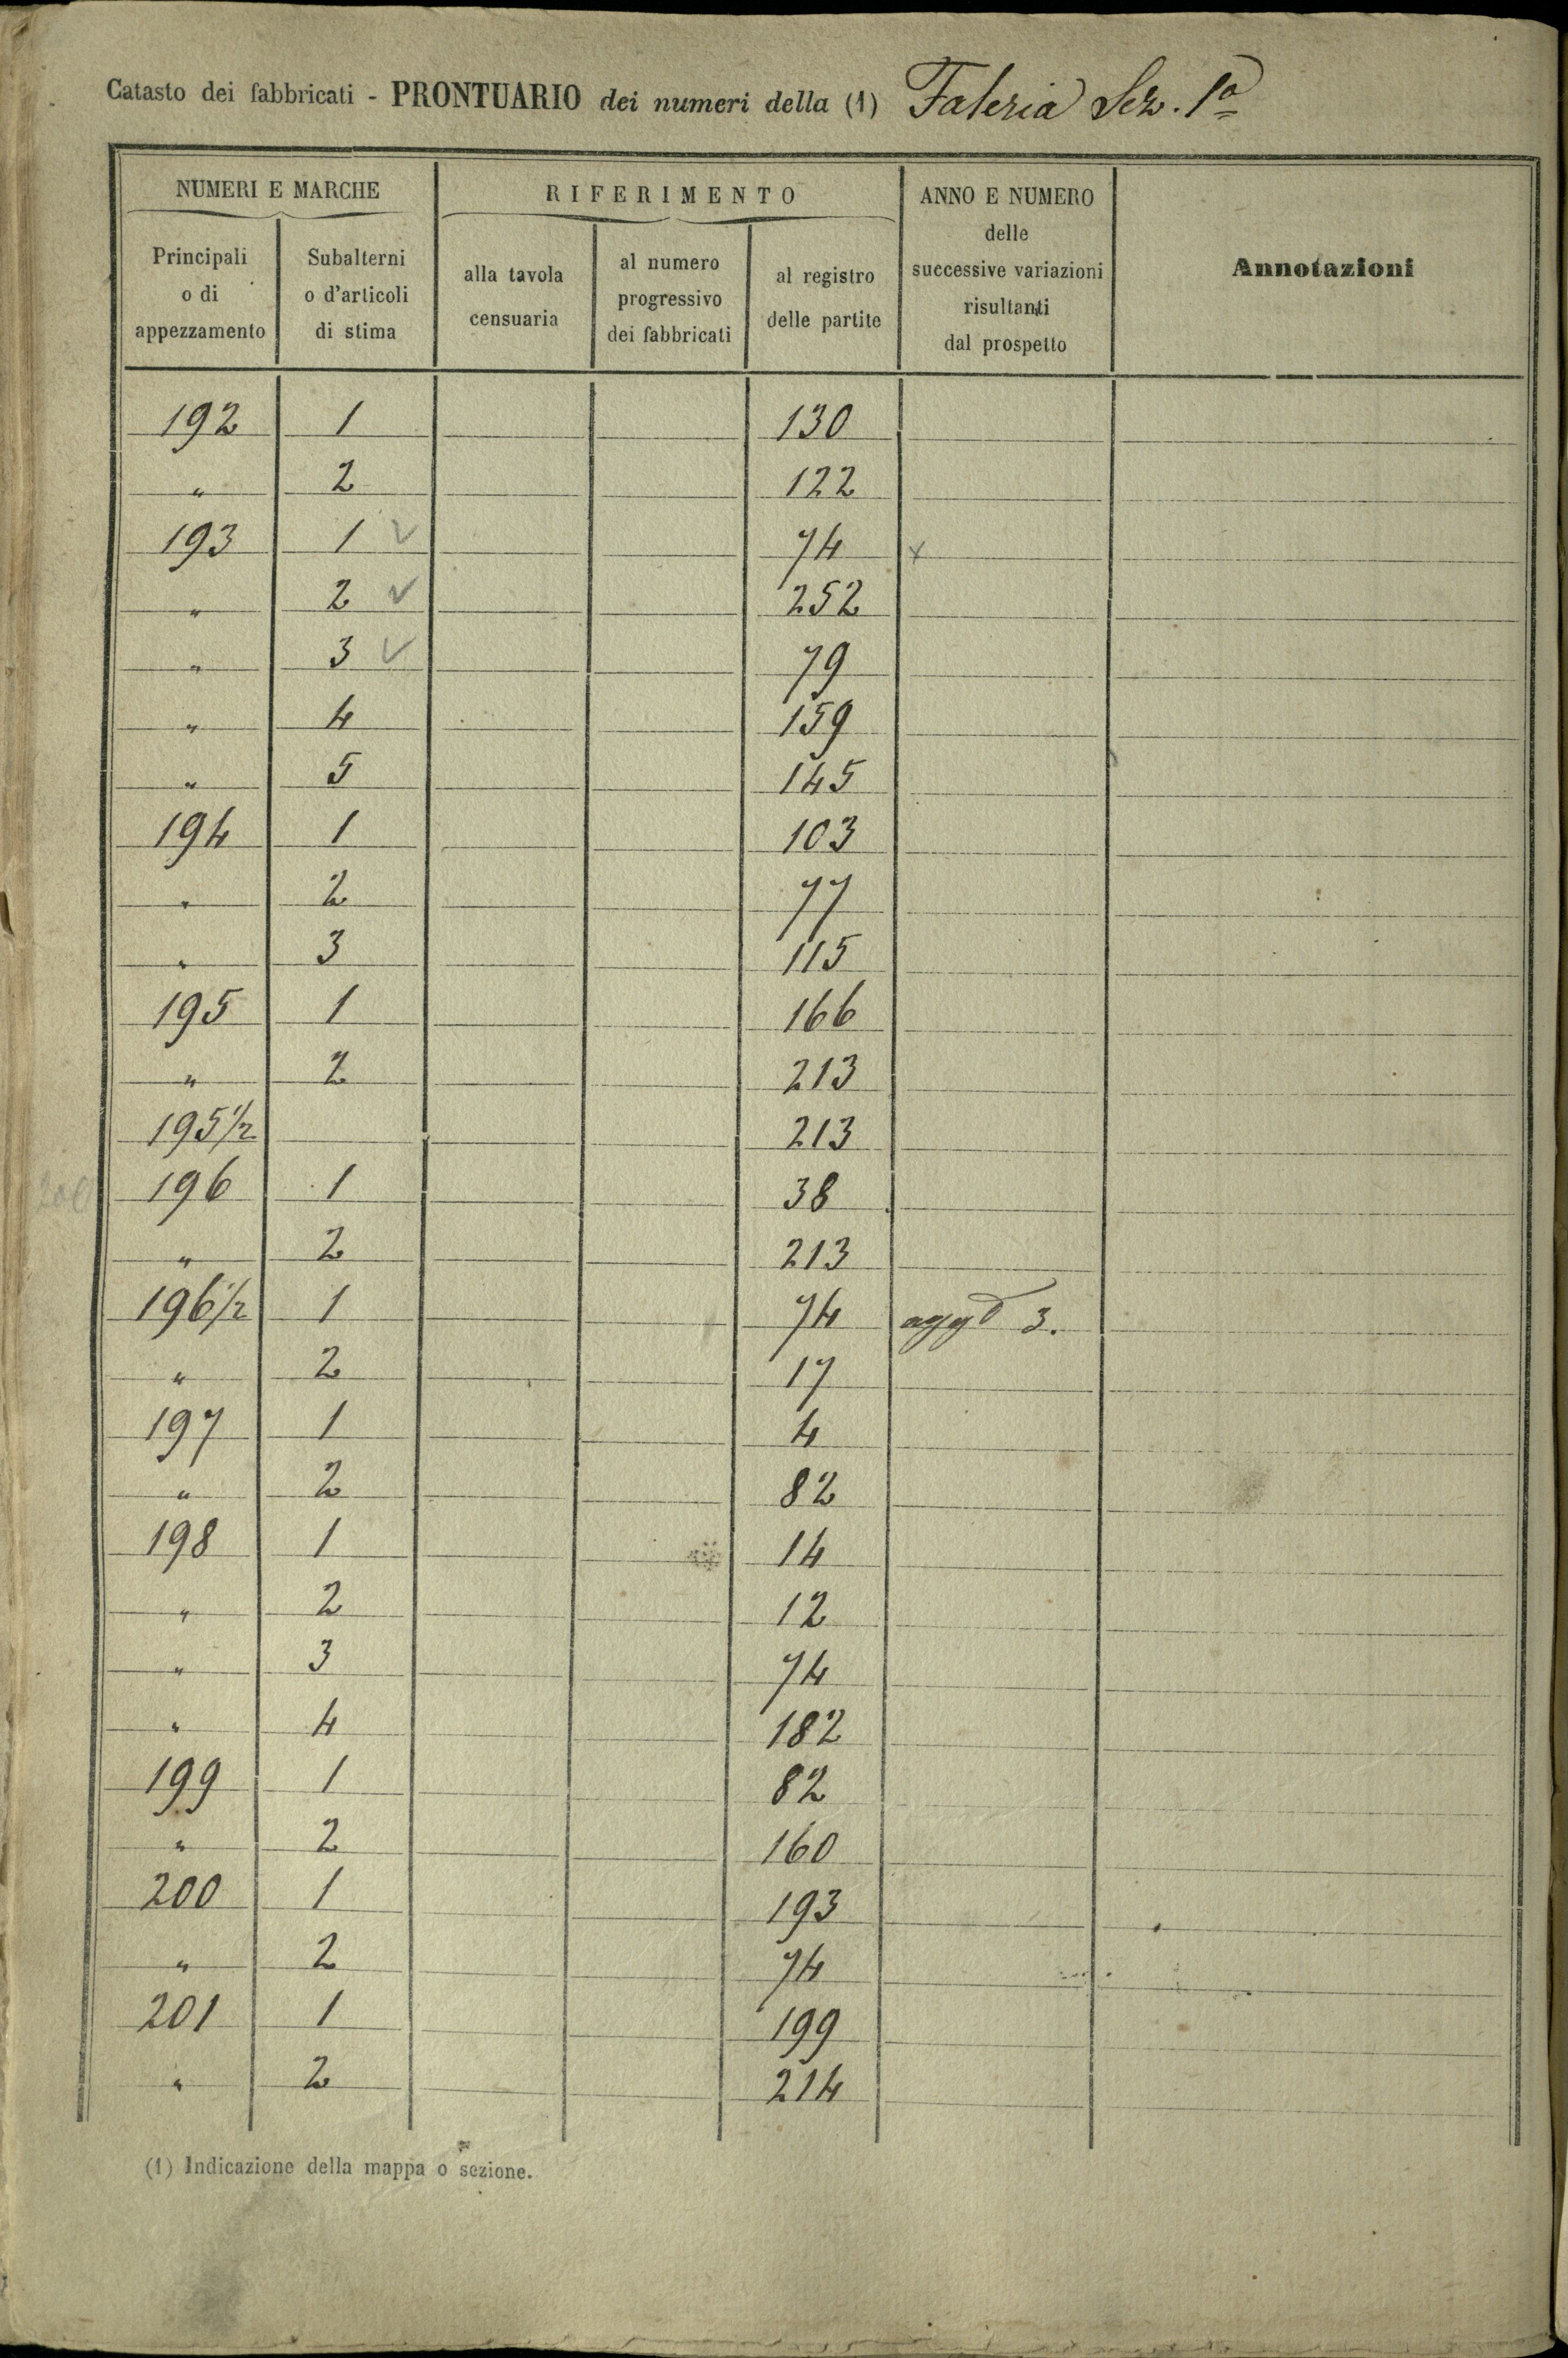 Catasto dei fabbricati - PRONTUARIO dei numeri della (1) Faleria Sez. 1ª
NUMERI E MARCHE
RIFERIMENTO
ANNO E NUMERO
delle
successive variazioni
risultanti
dal prospetto
Annotazioni
Principali
o di
appezzamento
Subalterni
o d'articoli
di stima
alla tavola
censuaria
al numero
progressivo
dei fabbricati
al registro
delle partite
192 1 130
" 2 122
193 1 ✓ 74 x
" 2 ✓ 252
" 3 ✓ 79
" 4 159
" 5 145
194 1 103
" 2 77
" 3 115
195 1 166
" 2 213
195 1/2 213
196 1 38
" 2 213
196 1/2 1 74 3.
" 2 17
197 1 4
" 2 82
198 1 14
" 2 12
" 3 74
" 4 182
199 1 82
" 2 160
200 1 193
" 2 74
201 1 199
" 2 214
(1) Indicazione della mappa o sezione.